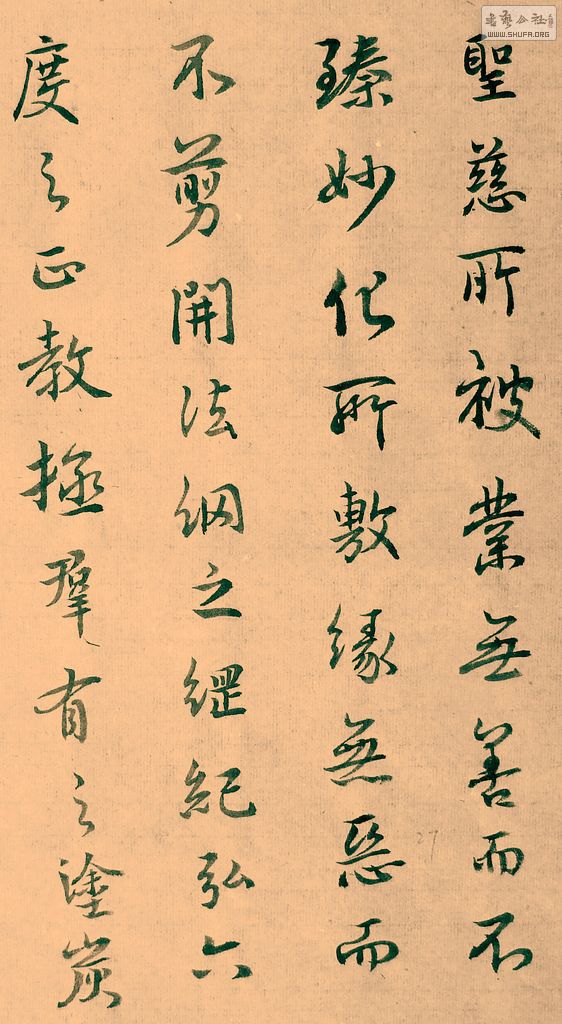 聖慈所被業無善而不
臻妙化所敷緣無惡而
不剪開法網之綱紀弘六
度之正教拯羣有之塗炭
27
书艺公社
WWW.SHUFA.ORG